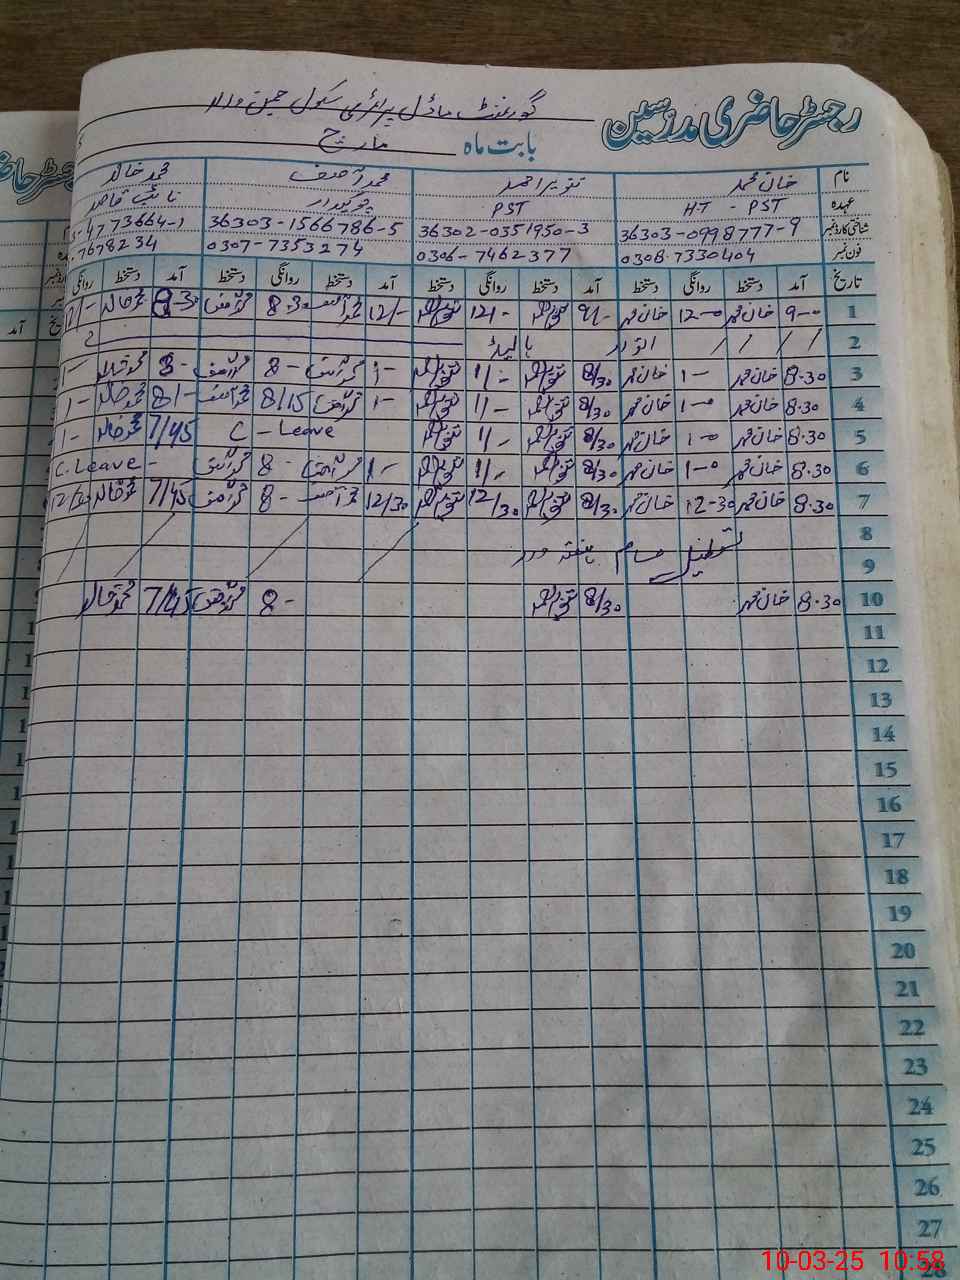 رجسٹر حاضری مدرسین
گورنمنٹ ماڈل پرائمری سکول
بابت ماہ مارچ
نام خان محمد تنویر احمد محمد آصف محمد خالد
عہدہ H.T - PST PST چوکیدار نائب قاصد
شناختی کارڈ نمبر 36303-0998777-9 36302-0351950-3 36303-1566786-5 4773664-1
فون نمبر 0308.7330404 0306-7462377 0307-7353274 7678234
تاریخ آمد دستخط روانگی دستخط آمد دستخط روانگی دستخط آمد دستخط روانگی دستخط آمد دستخط روانگی
1 9-00 خان محمد 12-00 خان محمد 9/- تنویر احمد 12/- تنویر احمد 12/- محمد آصف 8-30 محمد آصف 8-30 محمد خالد 12/-
2 / / / / اتوار
3 8.30 خان محمد 1-00 خان محمد 8/30 تنویر احمد 1/- تنویر احمد 1- محمد آصف 8- محمد آصف 8- محمد خالد 1-
4 8.30 خان محمد 1-00 خان محمد 8/30 تنویر احمد 1/- تنویر احمد 1- محمد آصف 8/15 محمد آصف 8/- محمد خالد 1-
5 8.30 خان محمد 1-00 خان محمد 8/30 تنویر احمد 1/- تنویر احمد C - Leave 7/45 محمد خالد 1-
6 8.30 خان محمد 1-00 خان محمد 8/30 تنویر احمد 1/- تنویر احمد 1- محمد آصف 8- محمد آصف C. Leave -
7 8.30 خان محمد 12-30 خان محمد 8/30 تنویر احمد 12/30 تنویر احمد 12/30 محمد آصف 8- محمد آصف 7/45 محمد خالد 12/30
8 تعطیل
9
10 8.30 خان محمد 8/30 تنویر احمد 8- محمد آصف 7/45 محمد خالد
11
12
13
14
15
16
17
18
19
20
21
22
23
24
25
26
27
28
10-03-25 10:58